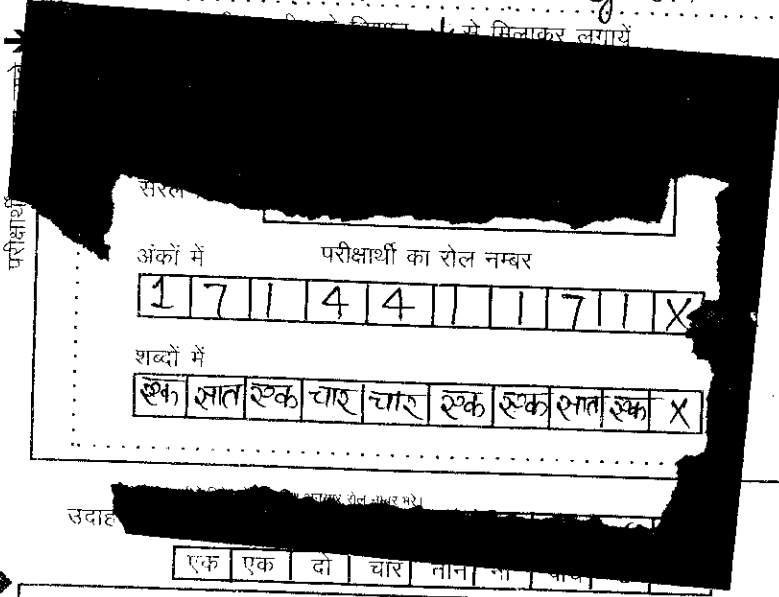 से मिलाकर लगायें
परीक्षार्थी
अंकों में परीक्षार्थी का रोल नम्बर
1 7 1 4 4 1 1 7 1 X
शब्दों में
एक सात एक चार चार एक एक सात एक X
रोल नम्बर भरे।
एक एक दो चार